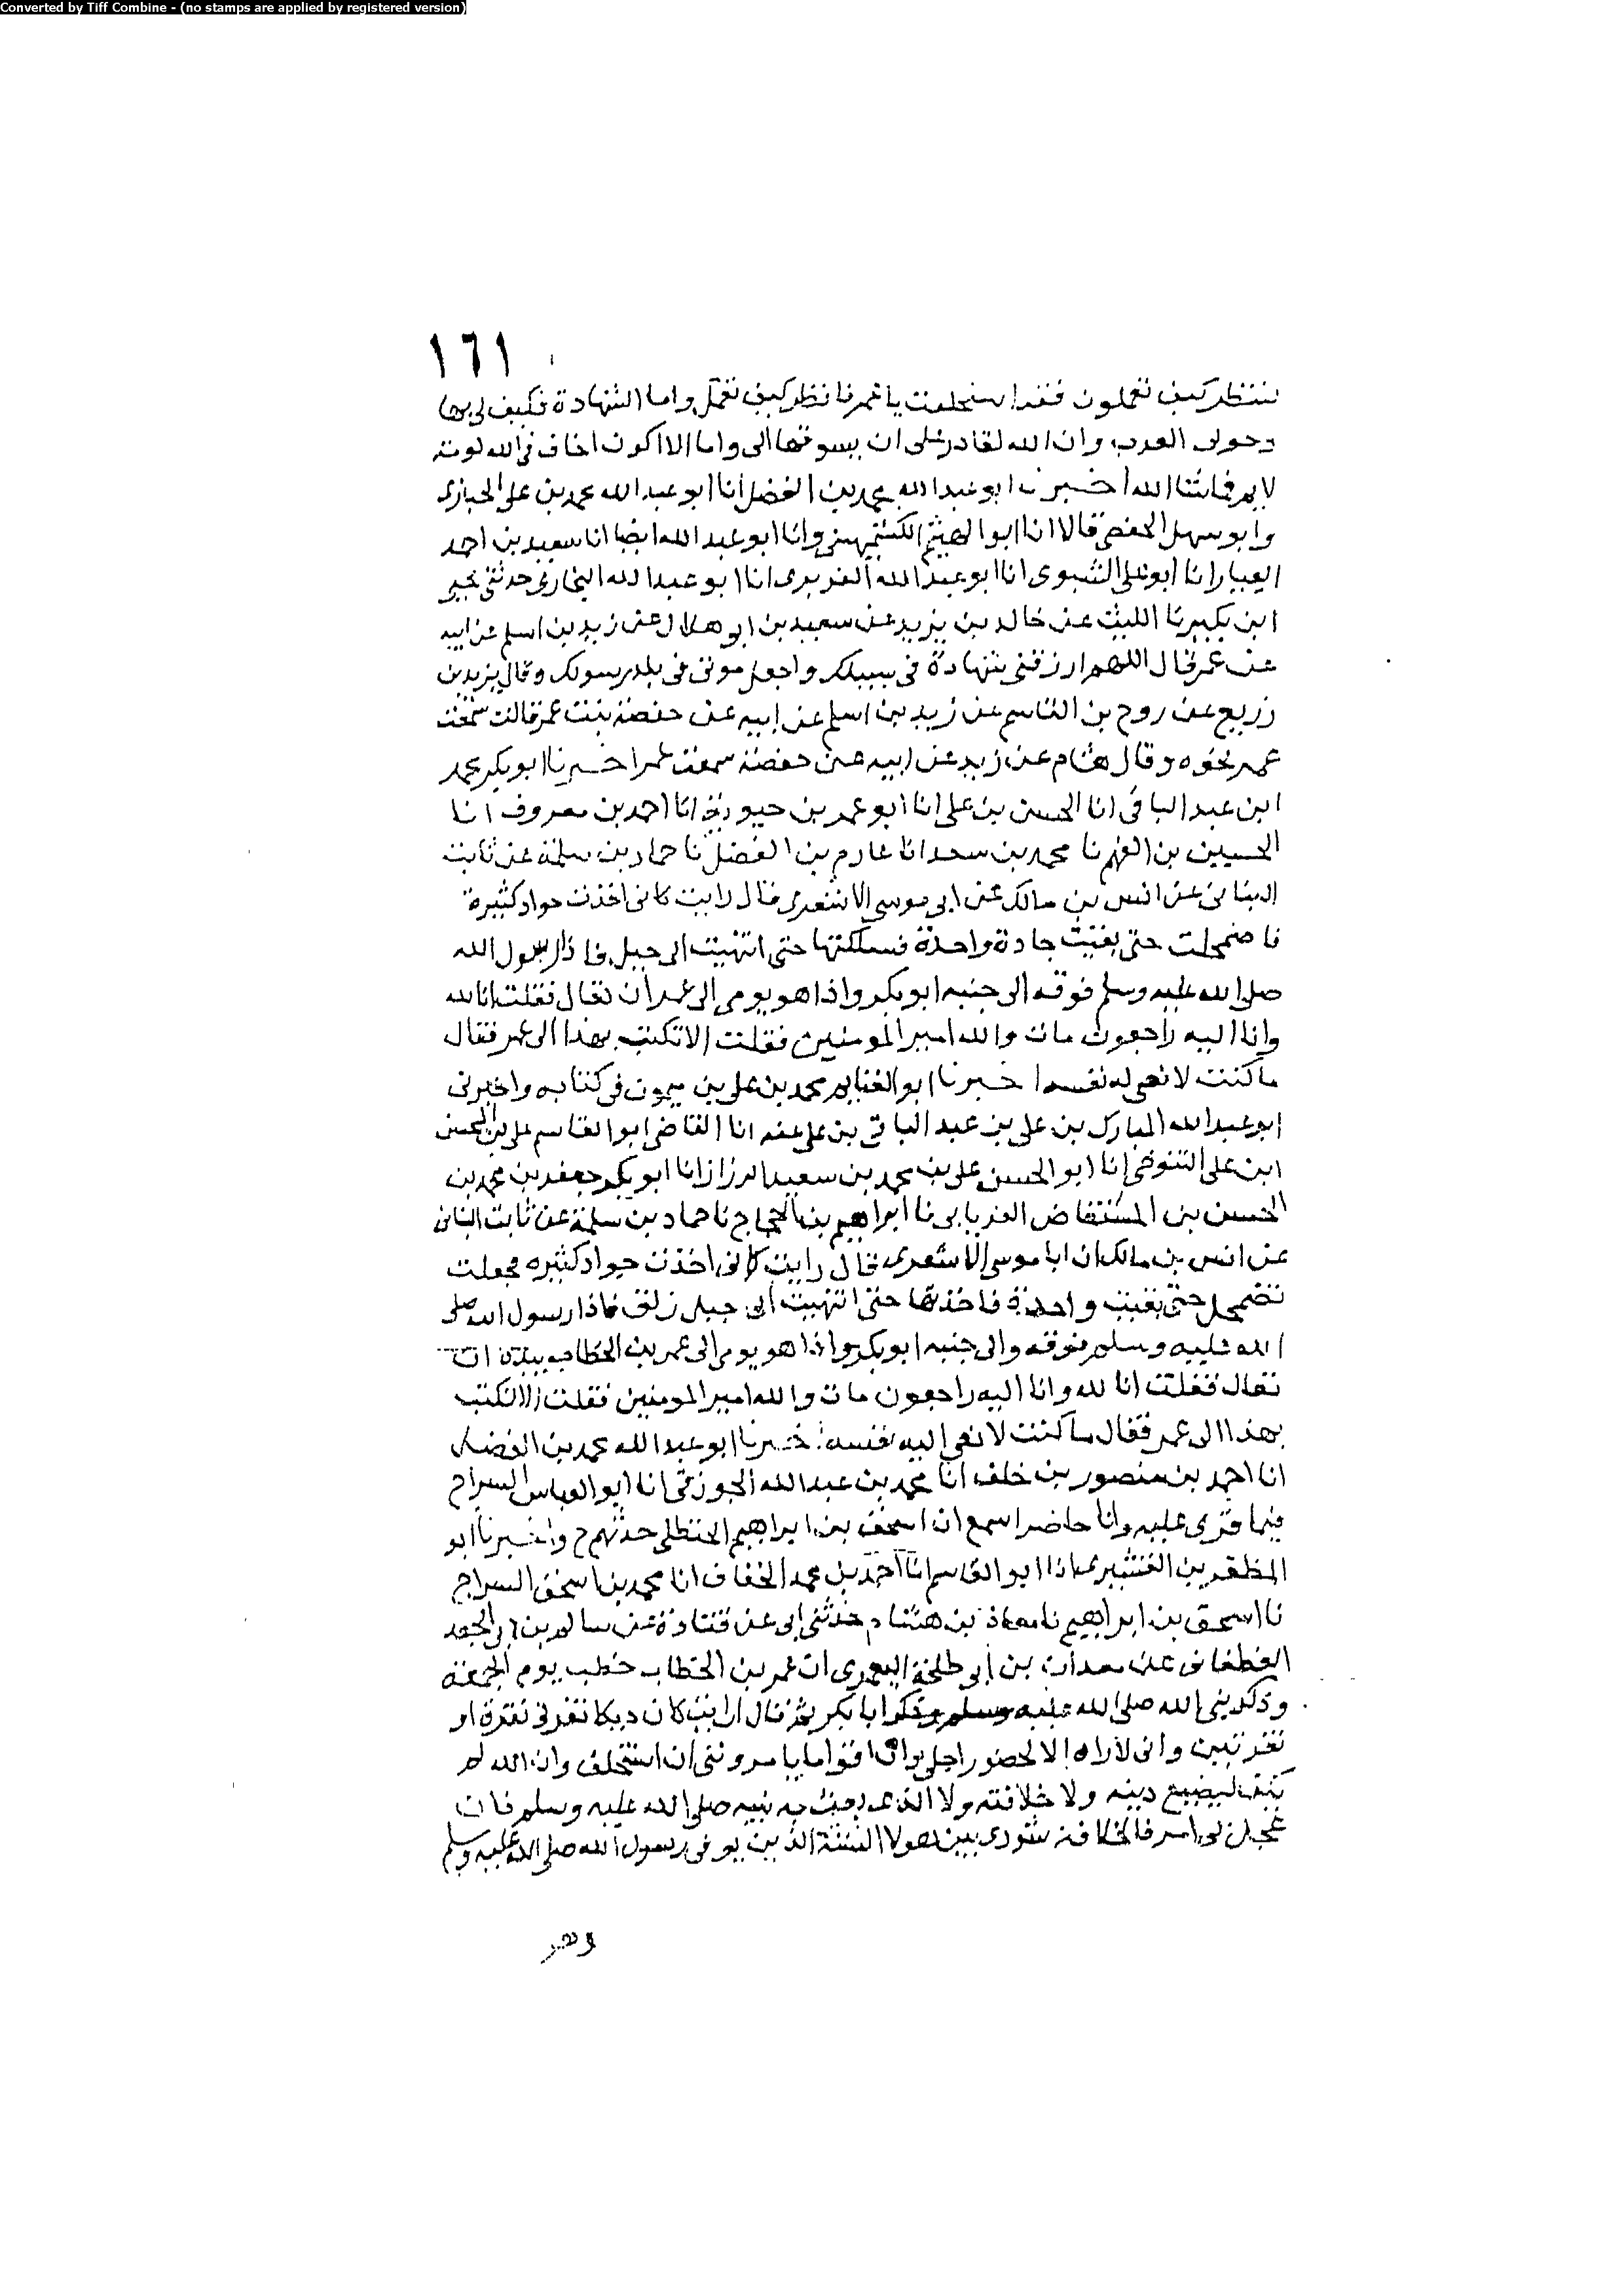 Converted by Tiff Combine - (no stamps are applied by registered version)
١٦١
لننظر كيف تعملون فقد استخلفت يا عمر فانظر كيف تعمل واما الشهادة فكيف لى بها
وحولى العرب وان الله لقادر على ان يسوقها الى واما الا اكون اخاف فى الله لومة
لايم فاشا الله اخبرنا ابو عبد الله محمد بن الفضل انا ابو عبد الله محمد بن على الخبازى
وابو سهل الحفصى قالا انا ابو الهيثم الكشميهنى وانا ابو عبد الله ايضا انا سعيد بن احمد
العيار انا ابو على الشبوى انا ابو عبد الله الفربرى انا ابو عبد الله البخارى حدثنى يحيى
ابن بكير نا الليث عن خالد بن يزيد عن سعيد بن ابو هلال عن زيد بن اسلم عن ابيه
عن عمر قال اللهم ارزقنى شهادة فى سبيلك واجعل موتى فى بلد رسولك وقال يزيد بن
زريع عن روح بن القاسم عن زيد بن اسلم عن ابيه عن حفصة بنت عمر قالت سمعت
عمر نحوه وقال هشام عن زيد عن ابيه عن حفصة سمعت عمر اخبرنا ابو بكر محمد
ابن عبد الباقى انا الحسن بن على انا ابو عمر بن حيوية انا احمد بن معروف انا
الحسين بن الفهم نا محمد بن سعد انا عارم بن الفضل نا حماد بن سلمة عن ثابت
البنانى عن انس بن مالك عن ابى موسى الاشعرى قال رايت كانى اخذت جواد كثيرة
فاضمحلت حتى بقيت جادة واحدة فسلكتها حتى انتهيت الى جبل فاذا رسول الله
صلى الله عليه وسلم فوقه الى جنبه ابو بكر واذا هو يومى الى عمر ان تعال فقلت انا لله
وانا اليه راجعون مات والله امير المومنين فقلت الا تكتب بهذا الى عمر فقال
ما كنت لانعى له نفسه اخبرنا ابو الغنايم محمد بن على بن ميمون فى كتابه واخبرنى
ابو عبد الله المبارك بن على بن عبد الباقى بن على عنه انا القاضى ابو القاسم على بن المحسن
ابن على التنوخى انا ابو الحسن على بن محمد بن سعيد الرزاز انا ابو بكر جعفر بن محمد بن
الحسن بن المستفاض الفريابى نا ابراهيم بن الحجاج نا حماد بن سلمة عن ثابت البنانى
عن انس بن مالك ان ابا موسى الاشعرى قال رايت كانى اخذت جواد كثيره فجعلت
تضمحل حتى بقيت واحدة فاخذتها حتى انتهيت الى جبل زلق فاذا رسول الله صلى
الله عليه وسلم فوقه والى جنبه ابو بكر واذا هو يومى الى عمر بن الخطاب بيده ان
تعال فقلت انا لله وانا اليه راجعون مات والله امير المومنين فقلت الا تكتب
بهذا الى عمر فقال ما كنت لانعى اليه نفسه اخبرنا ابو عبد الله محمد بن الفضل
انا احمد بن منصور بن خلف انا محمد بن عبد الله الجوزقى انا ابو العباس السراج
فيما قرى عليه وانا حاضر اسمع ان اسحق بن ابراهيم الحنظلى حدثهم ح واخبرنا ابو
المظفر بن القشيرى انا ابو القاسم انا احمد بن محمد الخفاف انا محمد بن اسحق السراج
نا اسحق بن ابراهيم نا معاذ بن هشام حدثنى ابى عن قتادة عن سالم بن ابى الجعد
الغطفانى عن معدان بن ابى طلحة اليعمرى ان عمر بن الخطاب خطب يوم الجمعة
وذكر نبى الله صلى الله عليه وسلم وذكر ابا بكر ثم قال رايت كان ديكا نقرنى نقرة او
نقرتين وانى لا اراه الا لحضور اجلى وان اقواما يامرونى ان استخلف وان الله لم
يكن ليضيع دينه ولا خلافته ولا الذى بعث به نبيه صلى الله عليه وسلم فان
عجل لى امر فالخلافة شورى بين هولا الستة الذين توفى رسول الله صلى الله عليه وسلم
وهو